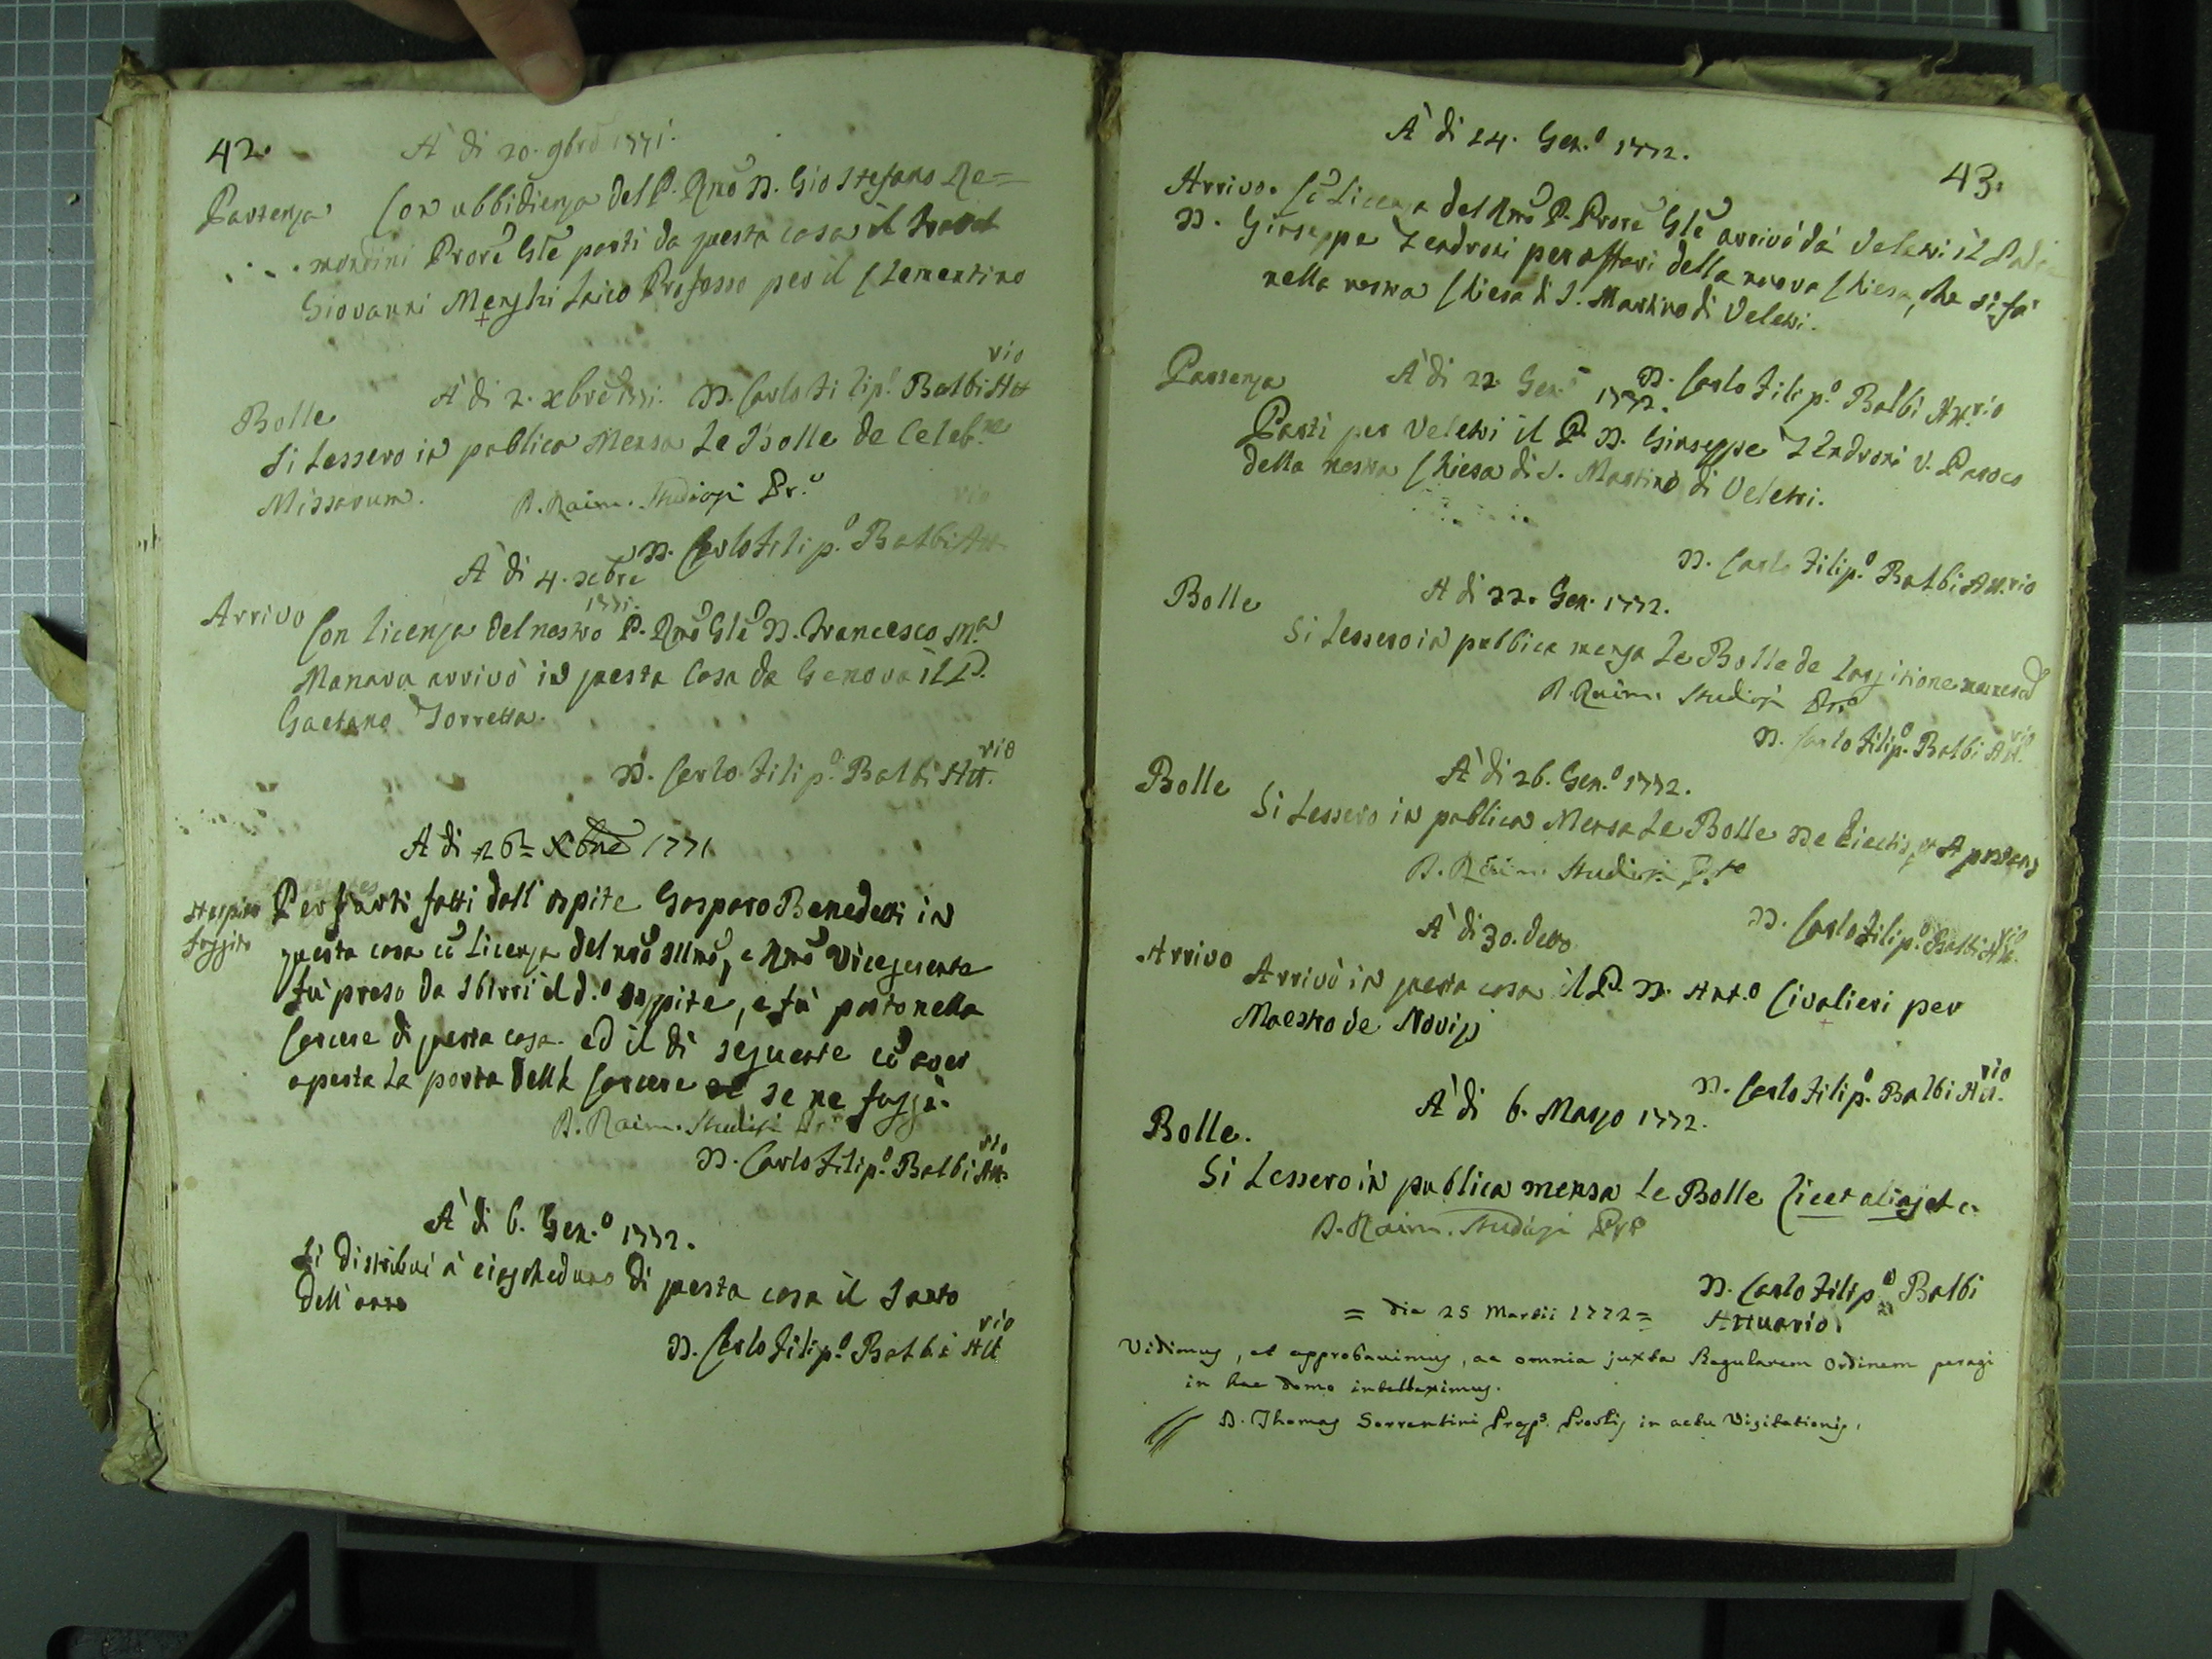 42.
A' di 20. 9bre 1771.
Partenza Con ubbidienza del P. Rmo D. Gio Stefano Re=
mondini Prore Gle parti da questa casa il Fratel
Giovanni Menghi Laico Professo per il Clementino
A' di 2. xbre 1771. D. Carlo Filip.o Balbi Att.rio
Bolle
Si Lessero in publica Mensa Le Bolle de Celeb.ne
Missarum. D. Raim. Studiosi Pr.o
D. Carlo Filip.o Balbi Att.rio
A' di 4. xbre 1771.
Arrivo Con licenza del nostro P. Rmo Gle D. Francesco M.a
Manara arrivò in questa Casa da Genova il P.
Gaetano Torretta.
D. Carlo Filip.o Balbi Att.rio
A di 26 Xbre 1771
Hospite fuggito
Per furti fatti dall' ospite Gasparo Benedetti in
questa casa cõ licenza del nrõ Illmõ, e Rmõ Vicegerente
fù preso da sbirri il d.o ospite, e fù posto nella
Carcere di questa casa. ed il di seguente cõ aver
aperta La porta della Carcere se ne fuggì.
D. Raim. Studiosi Pr.
D. Carlo Filip.o Balbi Att.rio
A' di 6. Gen.o 1772.
Si distribuì à ciascheduno di questa casa il Santo
dell' anno
D. Carlo Filip.o Balbi Att.rio
43.
A' di 24. Gen.o 1772.
Arrivo. Cõ Licenza del Rmõ P. Prore Gle arrivò dà Veletri il Padre
D. Giuseppe Zendroni per affari della nuova Chiesa, che si fà
nella nostra Chiesa di S. Martino di Veletri.
D. Carlo Filip.o Balbi Att.rio
Partenza A' di 22. Gen.o 1772.
Partì per Veletri il P. D. Giuseppe Zendroni V. Paroco
della nostra Chiesa di S. Martino di Veletri.
D. Carlo Filip.o Balbi Att.rio
Bolle A di 22. Gen. 1772.
Si Lessero in publica mensa Le Bolle de Largitione munerum
D. Raim. Studiosi Pr.o
D. Carlo Filip.o Balbi Att.rio
Bolle A' di 26. Gen.o 1772.
Si Lessero in publica Mensa Le Bolle De Eiectis, et Apostatis
D. Raim. Studiosi Pr.o
D. Carlo Filip.o Balbi Att.rio
A' di 30. detto
Arrivo Arrivò in questa casa il P. D. Ant.o Civalieri per
Maestro de Novizj
D. Carlo Filip.o Balbi Att.rio
A' di 6. Marzo 1772.
Bolle.
Si Lessero in publica mensa Le Bolle Licet alias etc.
D. Raim. Studiosi Pr.o
D. Carlo Filip.o Balbi
Attuario.
= die 25 Martii 1772 =
Vidimus, et approbavimus, ac omnia juxta Regularem Ordinem peragi
in hac domo intelleximus.
D. Thomas Sorrentini Prep.s Provlis in actu Visitationis.